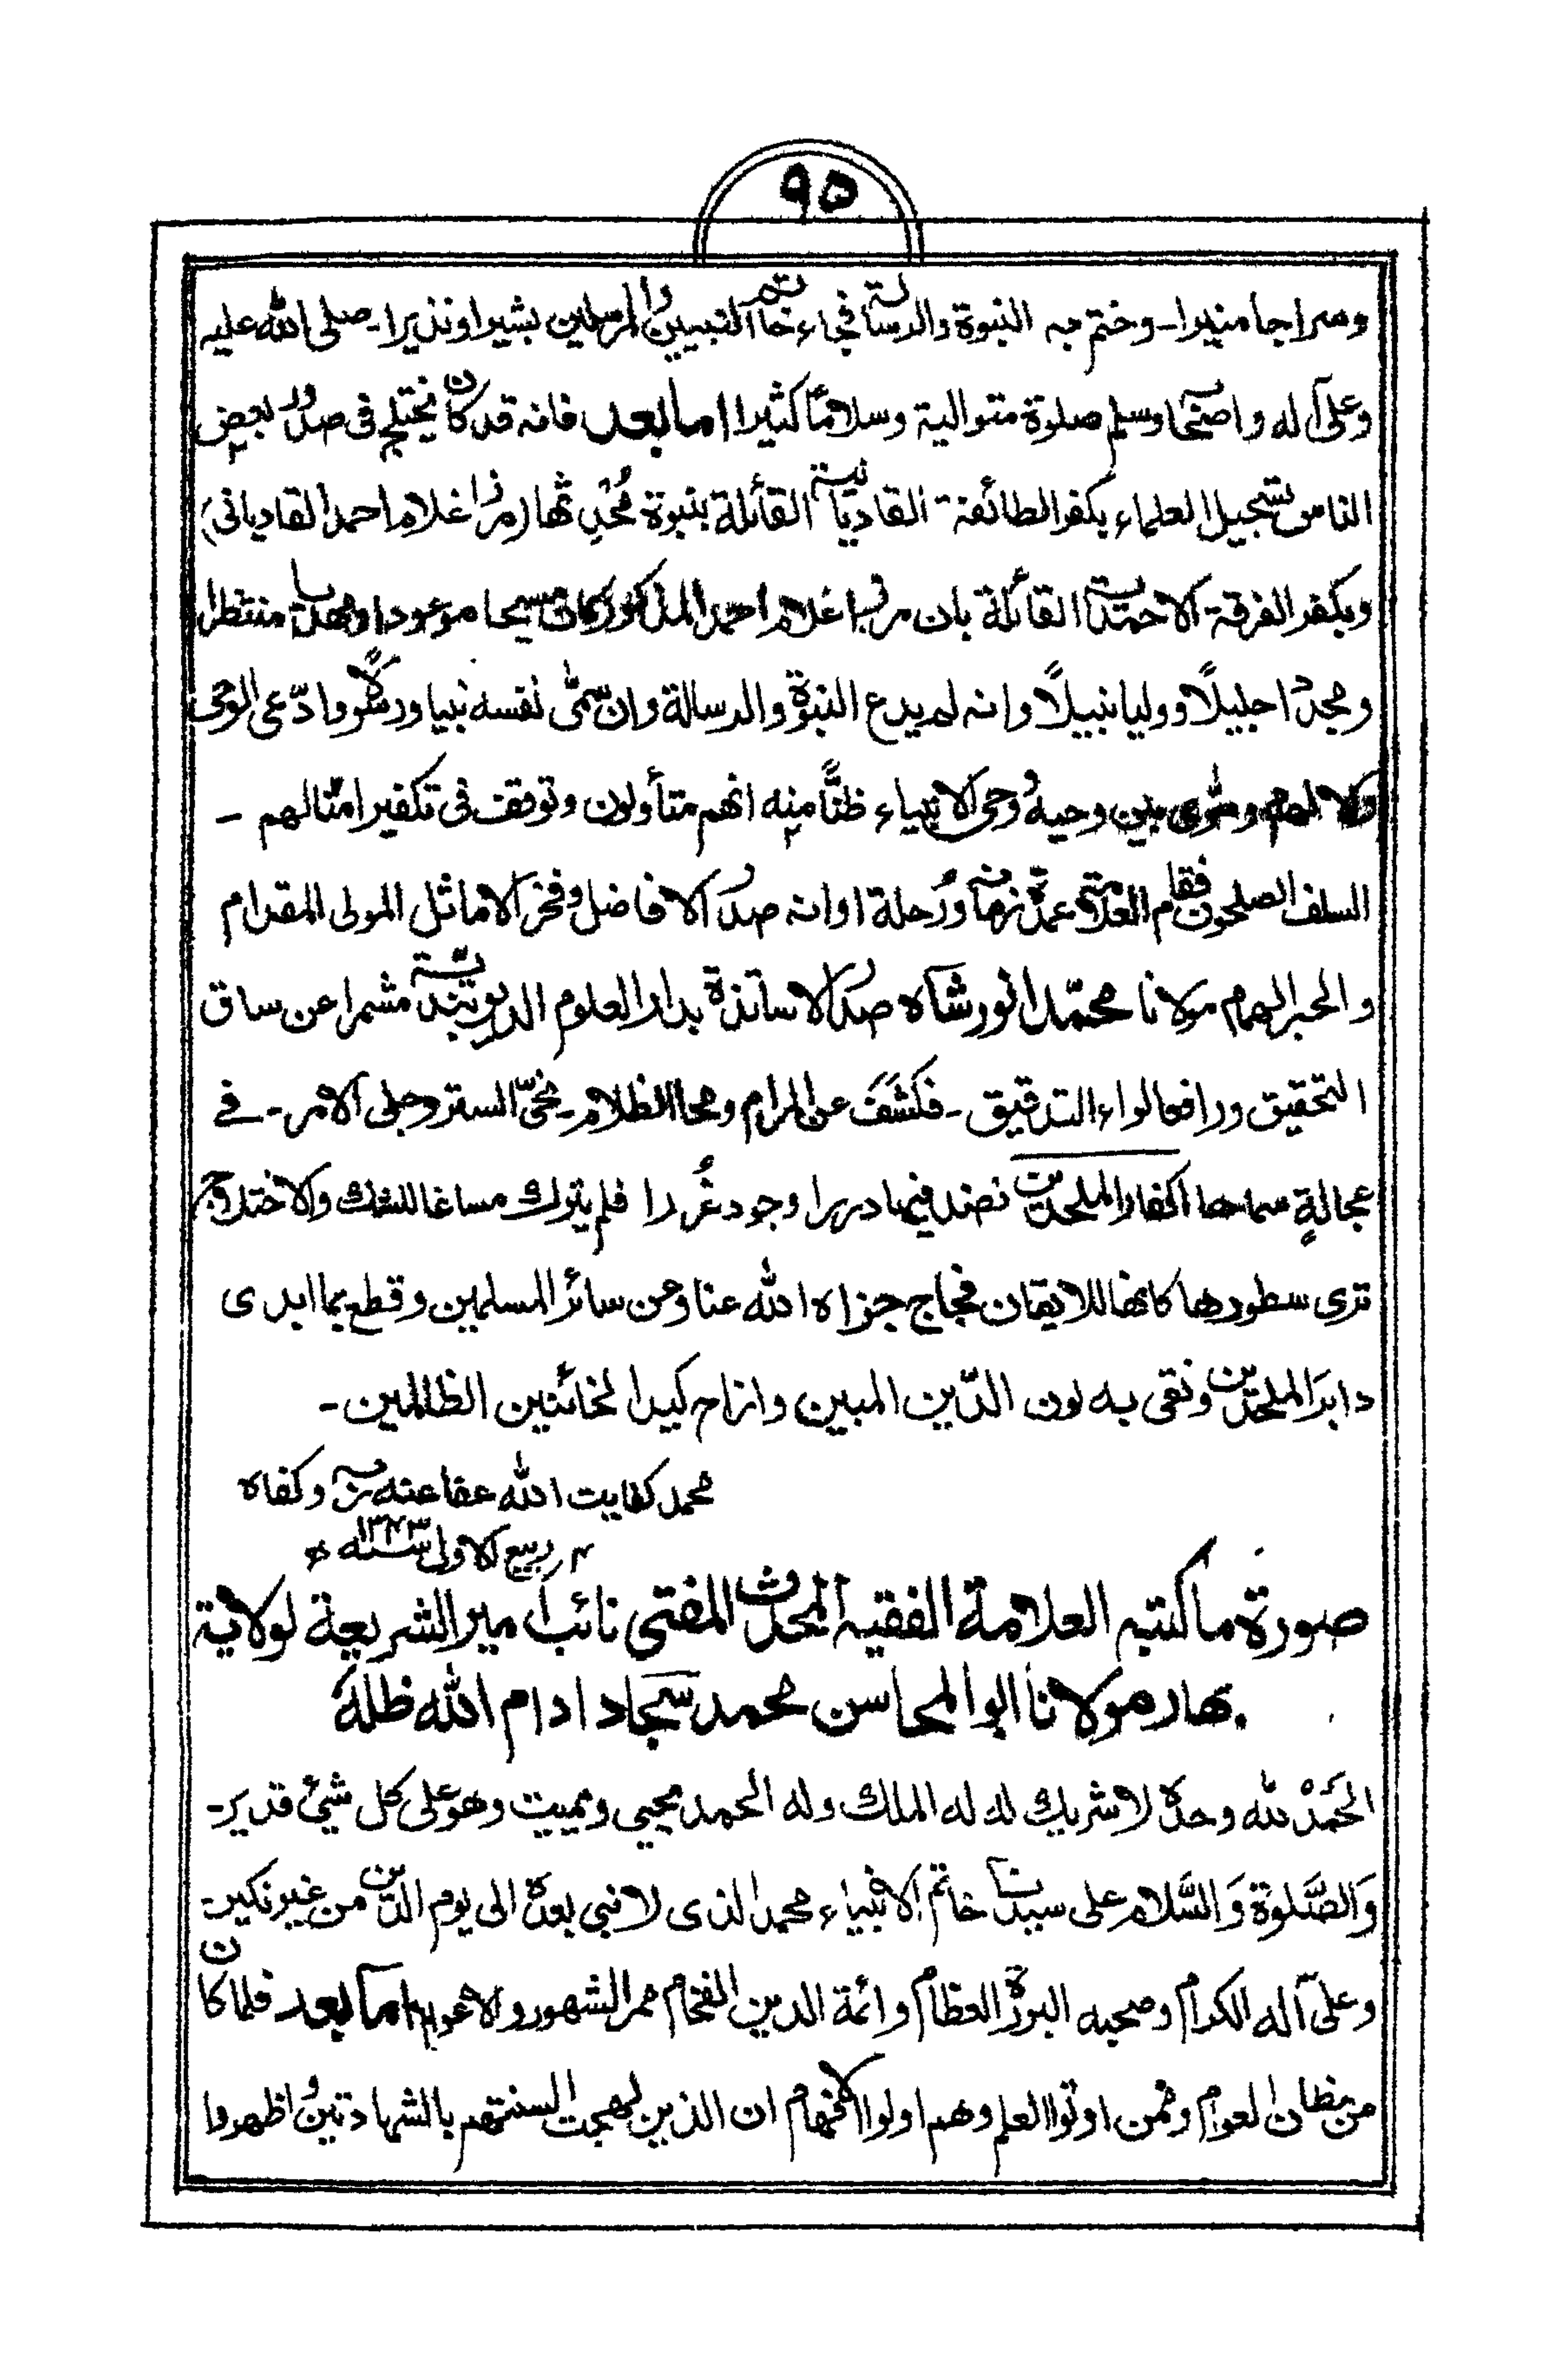 ٩٥
وسراجا منيرا۔ وختم به النبوة والرسالة فجاء خاتم النبيين والمرسلين بشيرا ونذيرا۔ صلى الله عليه
وعلى آله واصحابه وسلم صلوة متوالية وسلاما كثيرا اما بعد فانه قد كان يختلج فى صدور بعض
الناس تسجيل العلماء بكفر الطائفة القاديانية القائلة بنبوة مُحْدِثها (مرزا غلام احمد القاديانى)
وبكفر الفرقة الاحمدية القائلة بان مرزا غلام احمد المذكور كان مسيحا موعودا ومهديا منتظرا
ومجددا جليلًا ووليا نبيلًا وانه لم يدع النبوة والرسالة وان سمّٰى نفسه نبيا ورسولًا وادّعى الوحى
والالهام وسوى بين وحيه ووحى الانبياء ظنًّا منه انهم متأولون وتوقف فى تكفير امثالهم ۔
السلف الصلحون فقام العلامة عمدة زمانه ورُحلة اوانه صدر الافاضل وفخر الاماثل المولى المقدام
والحبر الهمام مولانا محمّد انور شاه صدر الاساتذة بدار العلوم الديوبندية مشمرا عن ساق
التحقيق ورافعا لواء التدقيق ۔ فكشف عن المرام ومحا الظلام۔ نحىّ الستر وجلى الامر۔ فے
عجالةٍ سماها اكفار الملحدين نضد فيها دررا وجود غُررا فلم يترك مساغا للشك والاختلاج
ترى سطورها كانها للايقان فجاج جزاه الله عنا وعن سائر المسلمين وقطع بما ابدى
دابرَ الملحدين ونقى به لون الدّين المبين وازاح كيد الخائنين الظالمين ۔
محمد كفايت الله عفا عنه ربه وكفاه
٢ ربيع الاولى سنه ١٣٤٣ ھ
صورة ما كتبه العلامة الفقيه المحدث المفتى نائب امير الشريعة لولاية
بهار مولانا ابو المحاسن محمد سجاد ادام الله ظلهٗ
الحَمْدُ لله وحده لا شريك له له الملك وله الحمد يحيى ويميت وهو على كل شئ قدير۔
وَالصَّلوة وَالسَّلام على سيدنا خاتم الانبياء محمد الذى لا نبى بعده الى يوم الدين من غير نكير۔
وعلى آله الكرام وصحبه البررة العظام وائمة الدين الفخام ممر الشهور والاعوام اما بعد فلما كان
من مظان العوام وممن اوتوا العلم وهم اولوا الافهام ان الذين لهجت السنتهم بالشهادتين واظهروا